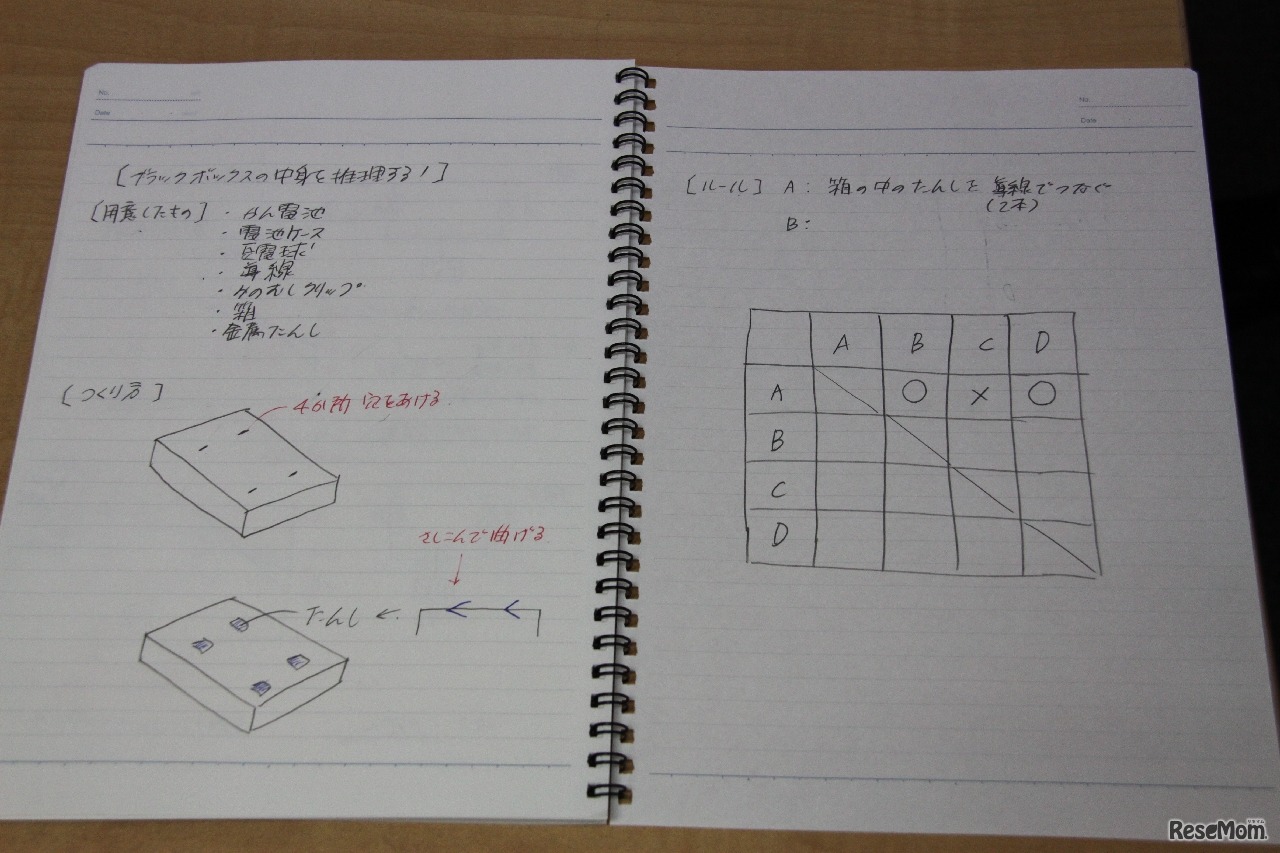 No.
Date
[ブラックボックスの中身を推理する！]
[用意したもの] ・かん電池
・電池ケース
・豆電球
・導線
・みのむしクリップ
・箱
・金属たんし
[つくり方]
4か所 穴をあける
さしこんで曲げる
たんし ←
No.
Date
[ルール] A: 箱の中のたんしを 導線でつなぐ
(2本)
B:
A B C D
A ○ × ○
B
C
D
ReseMom